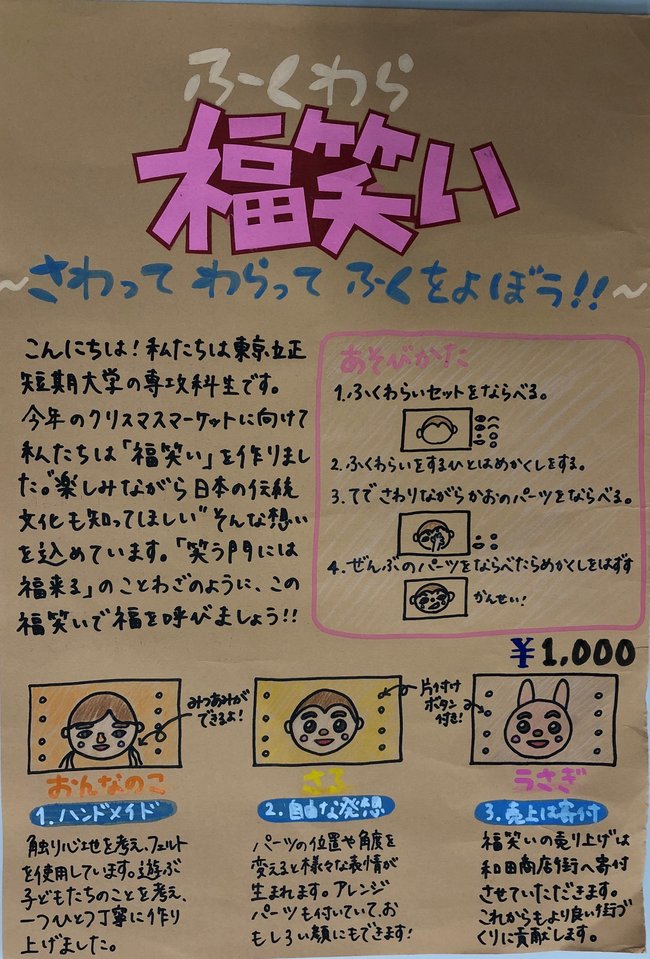 ふくわら
福笑い
～さわって わらって ふくをよぼう!!～
こんにちは!私たちは東京立正
短期大学の専攻科生です。
今年のクリスマスマーケットに向けて
私たちは「福笑い」を作りまし
た。"楽しみながら日本の伝統
文化も知ってほしい"そんな想い
を込めています。「笑う門には
福来る」のことわざのように、この
福笑いで福を呼びましょう!!
あそびかた
1.ふくわらいセットをならべる。
2.ふくわらいをするひとはめかくしをする。
3.てでさわりながらかおのパーツをならべる。
4.ぜんぶのパーツをならべたらめかくしをはずす
かんせい!
¥1,000
みつあみが
できるよ!
片付け
ボタン
付き!
おんなのこ
さる
うさぎ
1.ハンドメイド
触り心地を考え、フェルト
を使用しています。遊ぶ
子どもたちのことを考え、
一つひとつ丁寧に作り
上げました。
2.自由な発想
パーツの位置や角度を
変えると様々な表情が
生まれます。アレンジ
パーツも付いていて、お
もしろい顔にもできます!
3.売上は寄付
福笑いの売り上げは
和田商店街へ寄付
させていただきます。
これからもより良い街づ
くりに貢献します。